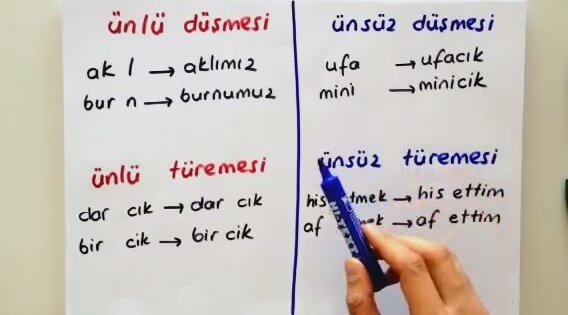 ünlü düşmesi
ak l → aklımız
bur n → burnumuz
ünlü türemesi
dar cık → dar cık
bir cik → bir cik
ünsüz düşmesi
ufa → ufacık
mini → minicik
ünsüz türemesi
his tmek → his ettim
af → af ettim